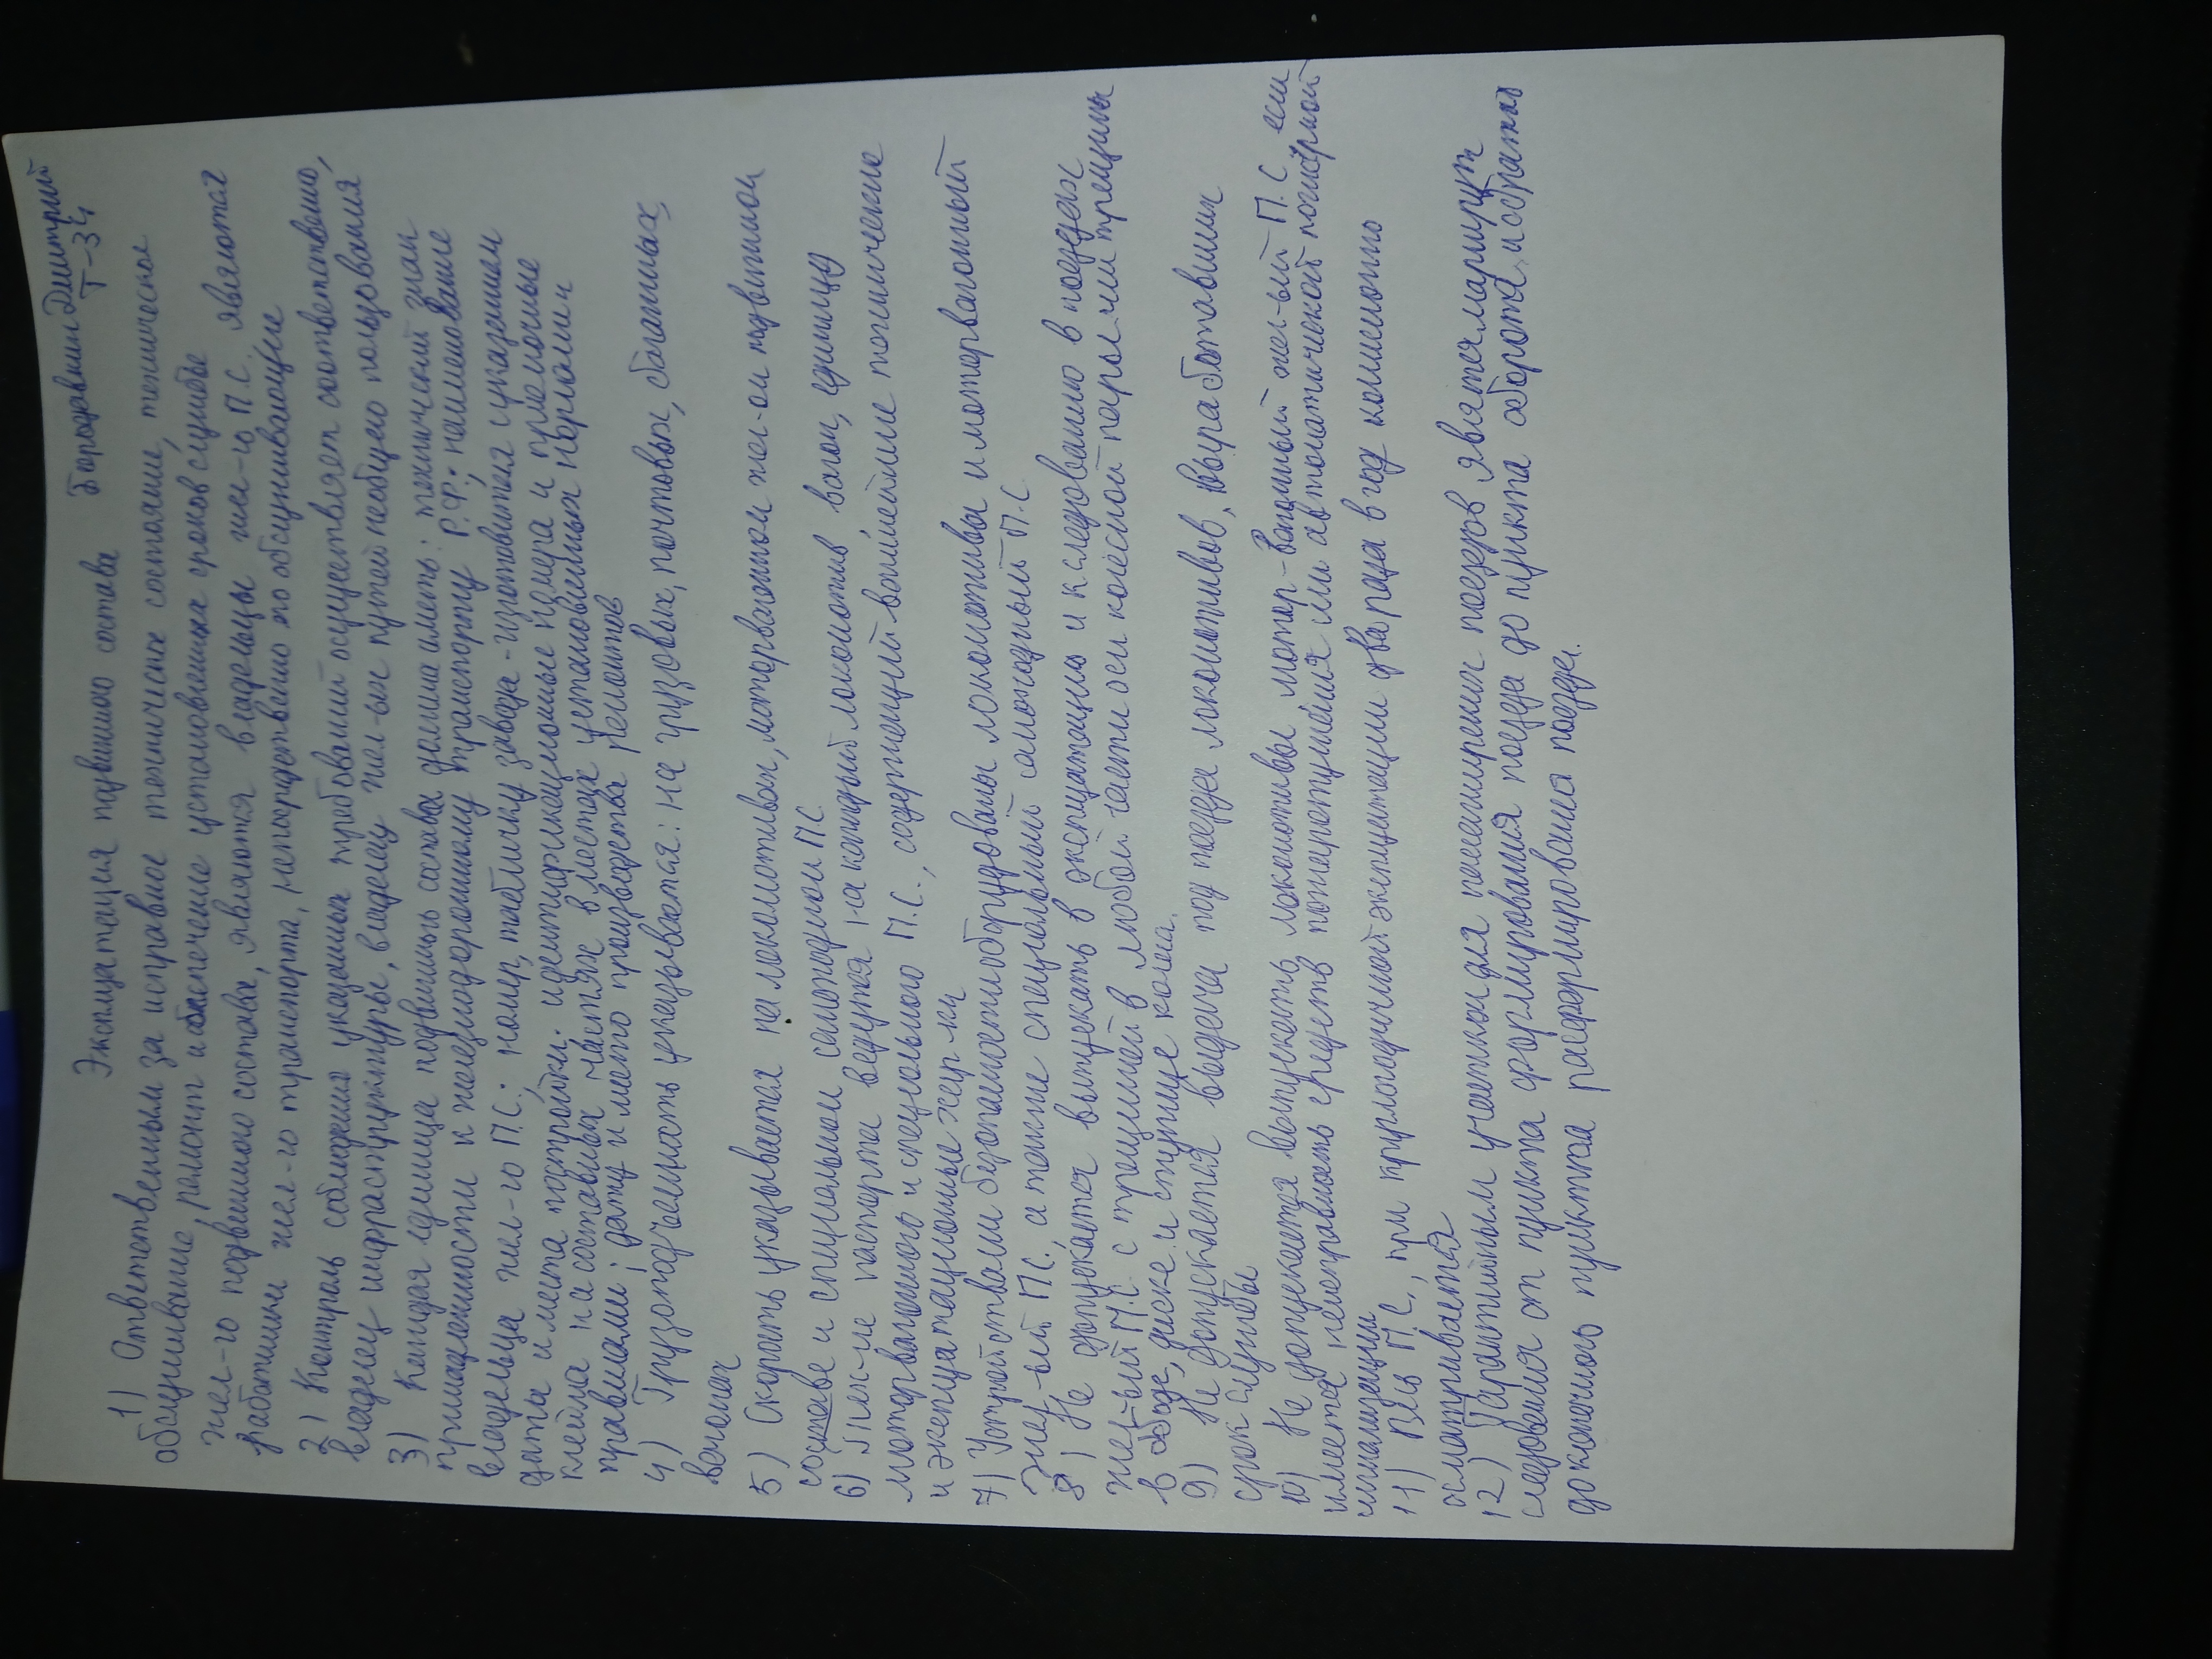 Эксплуатация подвижного состава Бородавкин Дмитрий
Т-34
1) Ответственным за исправное техническое состояние, техническое
обслуживание, ремонт и обеспечение установленных сроков службы
жел-го подвижного состава, являются владельцы жел-го П.С. являются
работники жел-го транспорта, непосредственно его обслуживающие
2) Контроль соблюдения указанных требований осуществляет соответственно,
владелец инфраструктуры, владелец жел-ых путей необщего пользования
3) Каждая единица подвижного состава должна иметь: технический знак
принадлежности к железнодорожному транспорту Р.Ф; наименование
владельца жел-го П.С.; номер, табличку завода-изготовителя с указанием
даты и места постройки; идентификационные номера и приемочные
клейма на составных частях в местах установленных нормами и
правилами; дату и место производства ремонтов
4) Грузоподъемность указывается: на грузовых, почтовых, багажных,
вагонах
5) Скорость указывается на локомотивах, моторвагонном жел-ом подвижном
составе и специальном самоходном П.С
6) Тех-ие паспорта ведутся на каждый локомотив, вагон, единицу
моторвагонного и специального П.С., содержащий важнейшие технические
и эксплуатационные хар-ки
7) Устройствами безопасности оборудованы локомотивы и моторвагонный
жел-ый П.С, а также специальный самоходный П.С
8) Не допускается выпускать в эксплуатацию и к следованию в поездах
жел-ый П.С с трещиной в любой части оси колесной пары или трещины
в ободе, диске и ступице колеса.
9) Не допускается выдача под поезда локомотивов, выработавших
срок службы
10) Не допускается выпускать локомотивы, мотор-вагонный жел-ый П.С если
имеется неисправность средств пожаротушения или автоматической пожарной
сигнализации
11) Весь П.С, при круглогодичной эксплуатации два раза в год комиссионно
осматривается
12) Гарантийным участком для пассажирских поездов является маршрут
следования от пункта формирования поезда до пункта оборота, и обратно
до конечного пункта расформирования поезда.